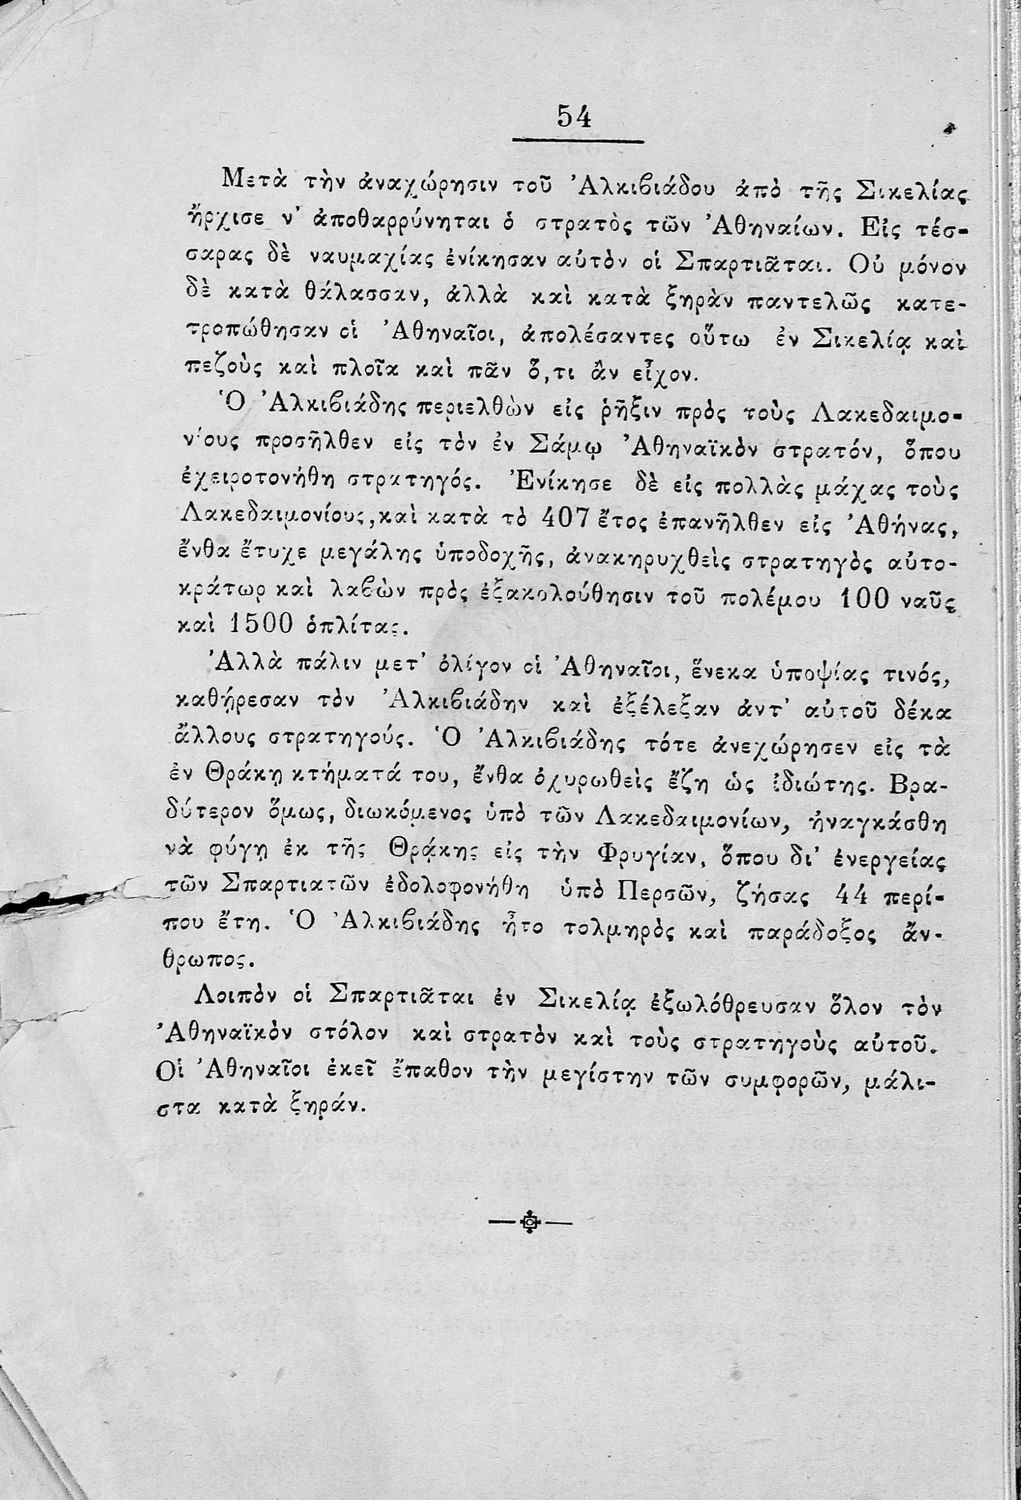 54
Μετὰ τὴν ἀναχώρησιν τοῦ Ἀλκιβιάδου ἀπὸ τῆς Σικελίας
ἤρχισε ν' ἀποθαρρύνηται ὁ στρατὸς τῶν Ἀθηναίων. Εἰς τέσ-
σαρας δὲ ναυμαχίας ἐνίκησαν αὐτὸν οἱ Σπαρτιᾶται. Οὐ μόνον
δὲ κατὰ θάλασσαν, ἀλλὰ καὶ κατὰ ξηρὰν παντελῶς κατε-
τροπώθησαν οἱ Ἀθηναῖοι, ἀπολέσαντες οὕτω ἐν Σικελίᾳ καὶ
πεζοὺς καὶ πλοῖα καὶ πᾶν ὅ,τι ἂν εἶχον.
Ὁ Ἀλκιβιάδης περιελθὼν εἰς ῥῆξιν πρὸς τοὺς Λακεδαιμο-
νίους προσῆλθεν εἰς τὸν ἐν Σάμῳ Ἀθηναϊκὸν στρατόν, ὅπου
ἐχειροτονήθη στρατηγός. Ἐνίκησε δὲ εἰς πολλὰς μάχας τοὺς
Λακεδαιμονίους, καὶ κατὰ τὸ 407 ἔτος ἐπανῆλθεν εἰς Ἀθήνας,
ἔνθα ἔτυχε μεγάλης ὑποδοχῆς, ἀνακηρυχθεὶς στρατηγὸς αὐτο-
κράτωρ καὶ λαβὼν πρὸς ἐξακολούθησιν τοῦ πολέμου 100 ναῦς
καὶ 1500 ὁπλίτας.
Ἀλλὰ πάλιν μετ' ὀλίγον οἱ Ἀθηναῖοι, ἕνεκα ὑποψίας τινός,
καθήρεσαν τὸν Ἀλκιβιάδην καὶ ἐξέλεξαν ἀντ' αὐτοῦ δέκα
ἄλλους στρατηγούς. Ὁ Ἀλκιβιάδης τότε ἀνεχώρησεν εἰς τὰ
ἐν Θράκῃ κτήματά του, ἔνθα ὀχυρωθεὶς ἔζη ὡς ἰδιώτης. Βρα-
δύτερον ὅμως, διωκόμενος ὑπὸ τῶν Λακεδαιμονίων, ἠναγκάσθη
νὰ φύγῃ ἐκ τῆς Θρᾴκης εἰς τὴν Φρυγίαν, ὅπου δι' ἐνεργείας
τῶν Σπαρτιατῶν ἐδολοφονήθη ὑπὸ Περσῶν, ζήσας 44 περί-
που ἔτη. Ὁ Ἀλκιβιάδης ἦτο τολμηρὸς καὶ παράδοξος ἄν-
θρωπος.
Λοιπὸν οἱ Σπαρτιᾶται ἐν Σικελίᾳ ἐξωλόθρευσαν ὅλον τὸν
Ἀθηναϊκὸν στόλον καὶ στρατὸν καὶ τοὺς στρατηγοὺς αὐτοῦ.
Οἱ Ἀθηναῖοι ἐκεῖ ἔπαθον τὴν μεγίστην τῶν συμφορῶν, μάλι-
στα κατὰ ξηράν.